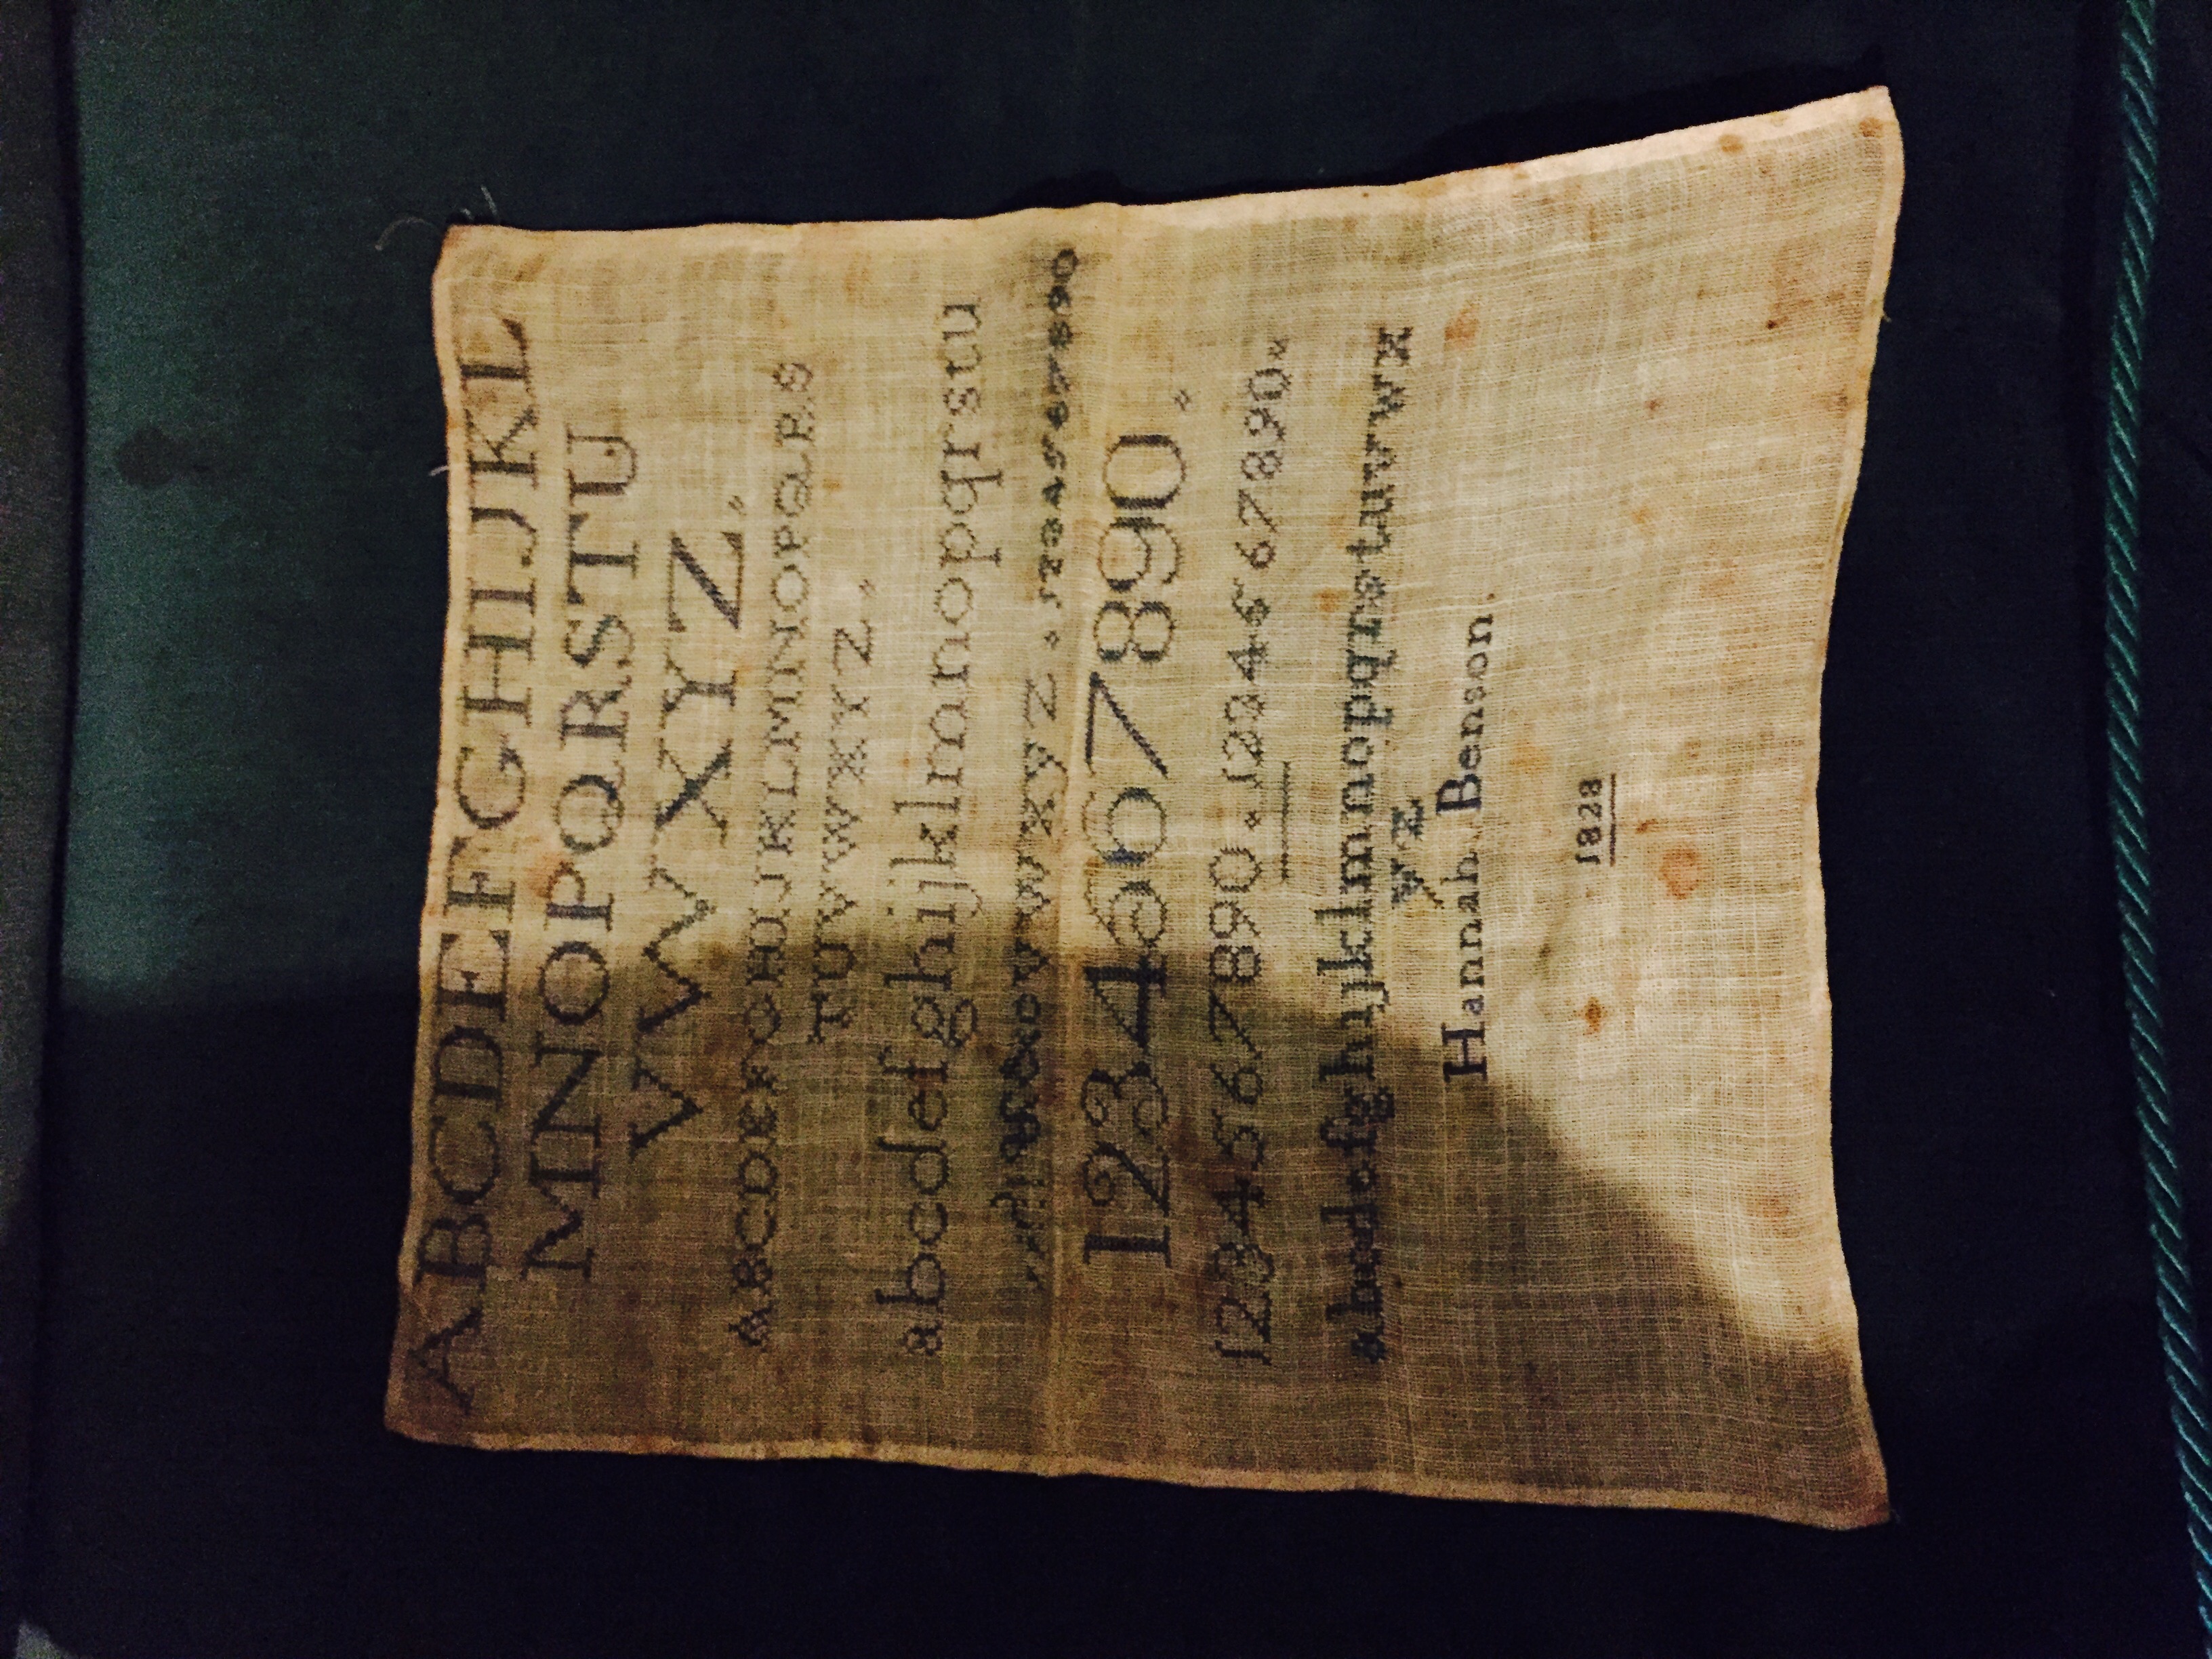 ABCDEFGHIJKL
MNOPQRSTU
VWXYZ.
ABCDEFGHIJKLMNOPQRS
TUVWXYZ.
abcdefghijklmnopqrstu
vwxyz. 1234567890
123467890.
1234567890. 1234567890.
abcdefghijklmnopqrstuvwx
yz
Hannah Benson.
1828